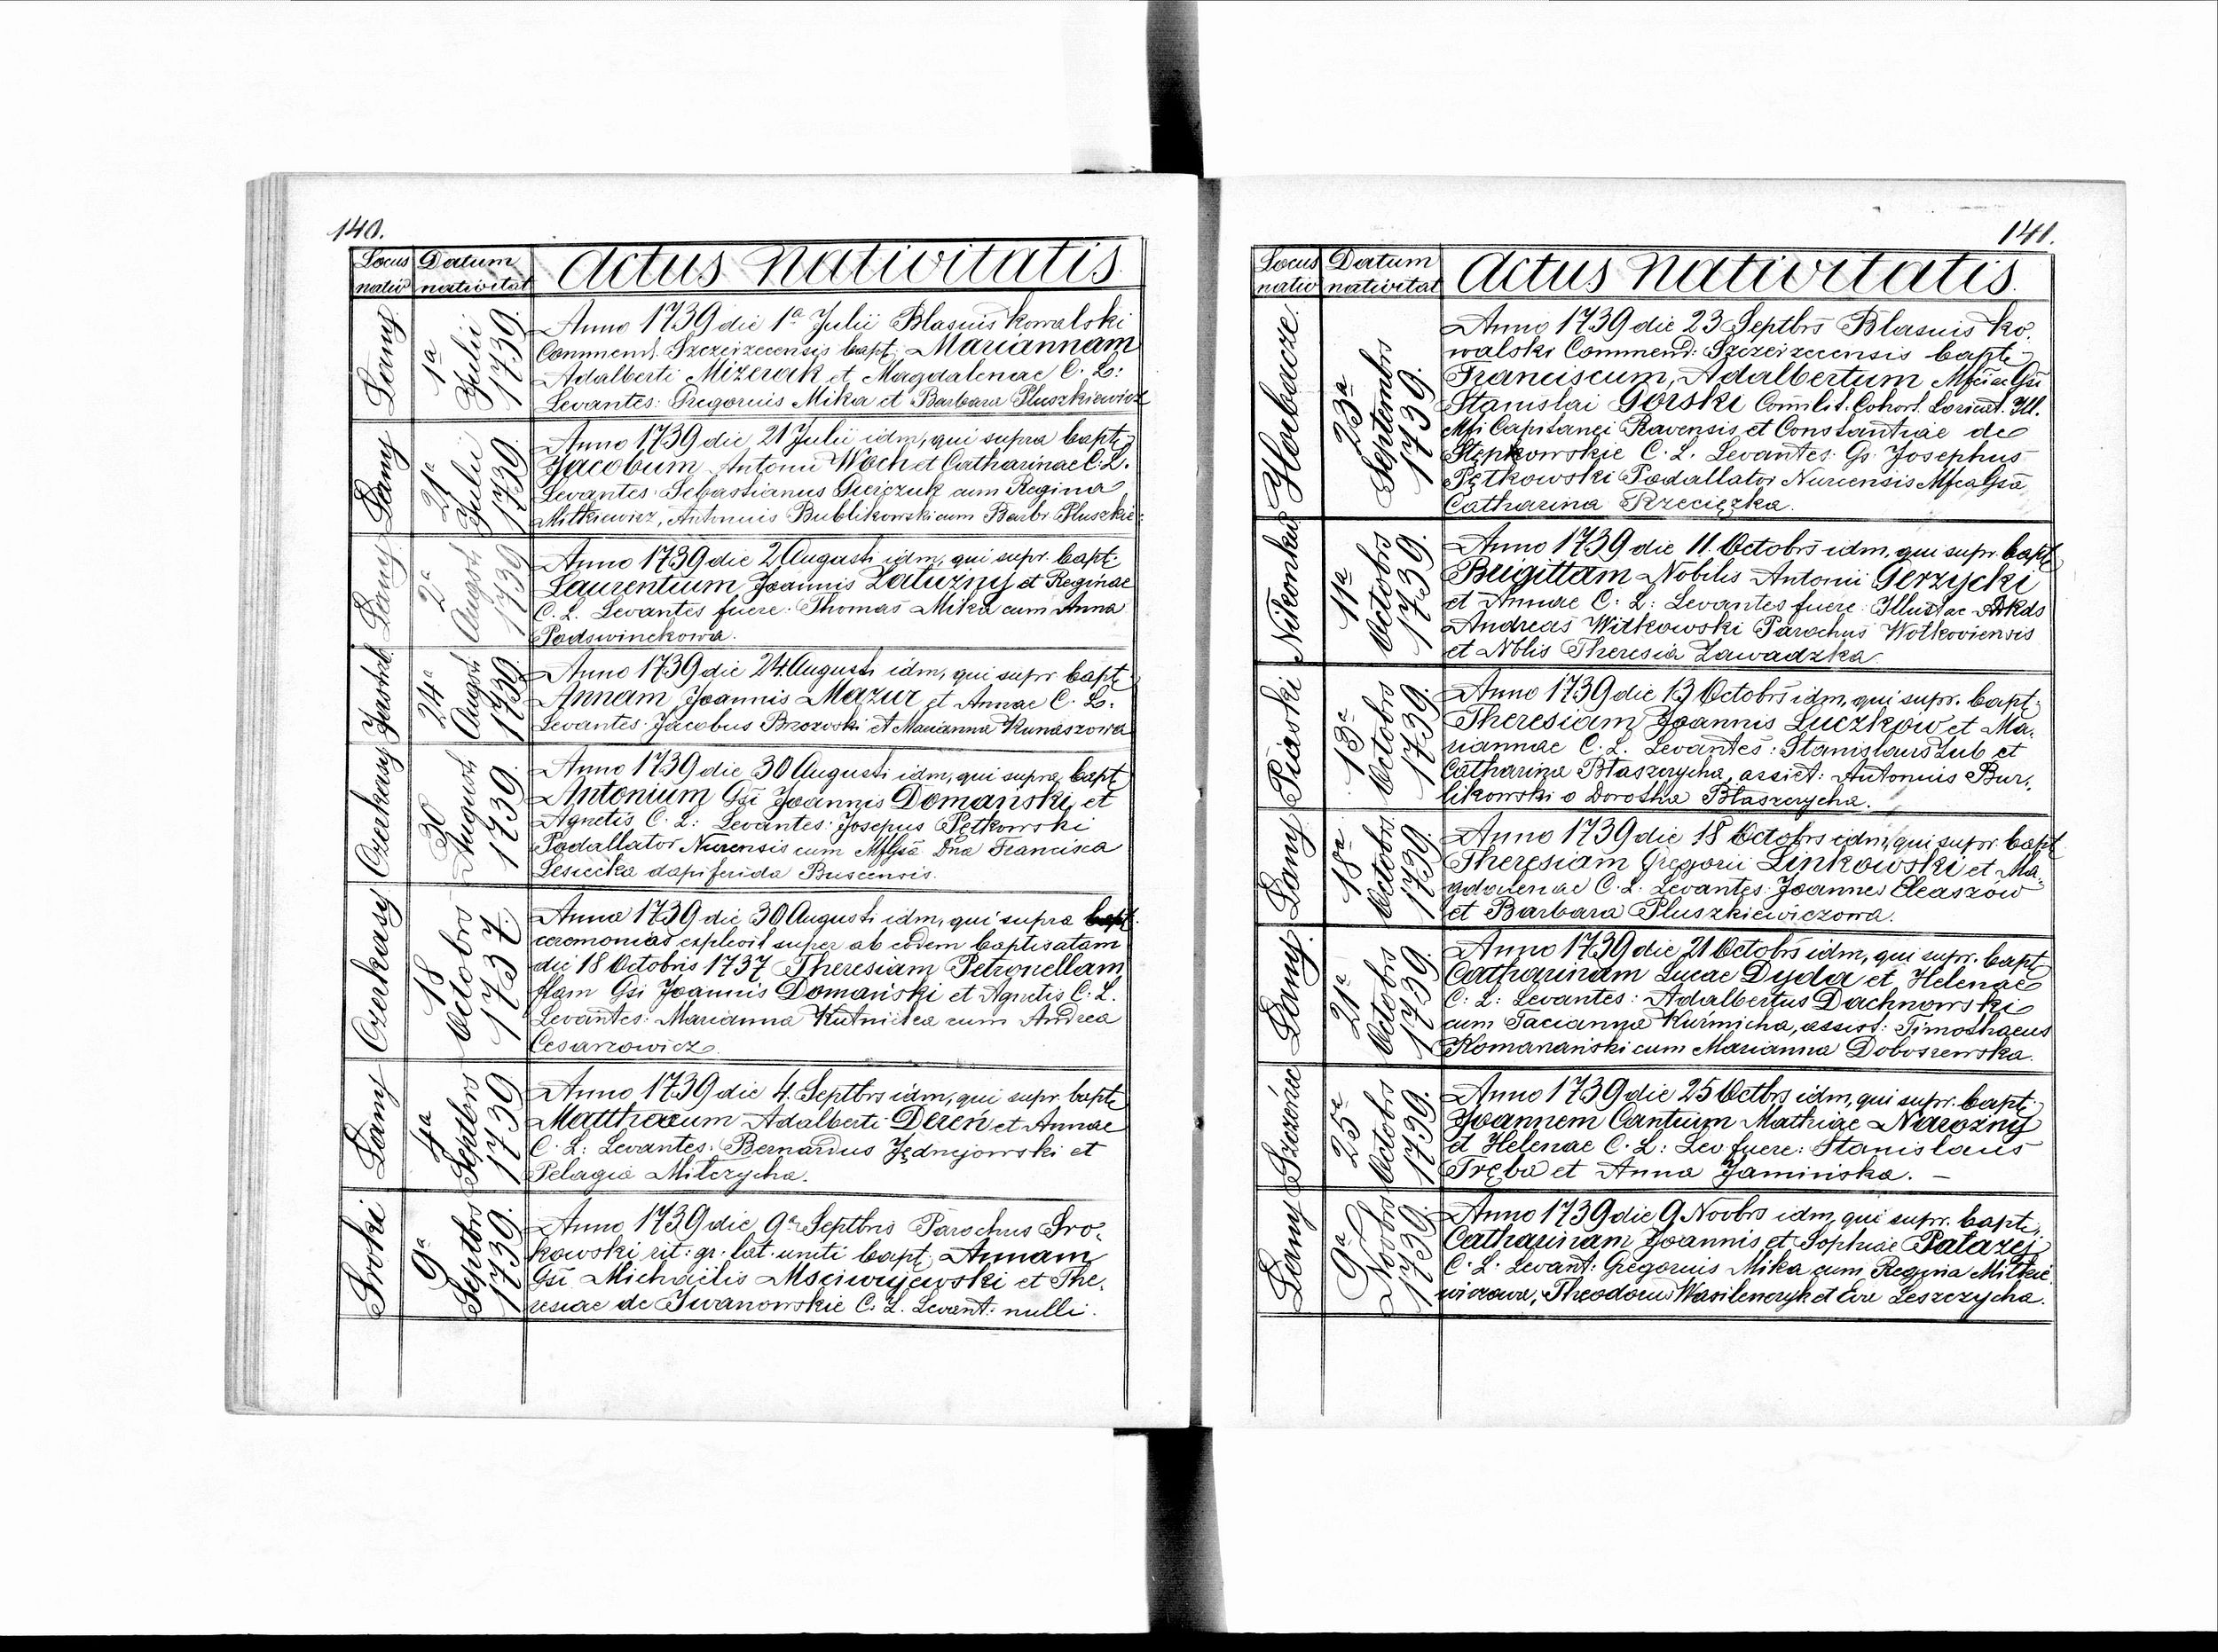 140.
Locus nativ
Datum nativitat
Actus Nativitatis
Łany
1a Julii 1739.
Anno 1739 die 1a Julii Blasius Kowalski
Commend. Szczeirzecensis bapt. Mariannam
Adalberti Mizerak et Magdalenae C. L:
Levantes: Gregorius Mika et Barbara Pluszkiewicz
Łany
21a Julii 1739.
Anno 1739 die 21 Julii idm, qui supra bapt.
Jacobum Antonii Woch et Catharinae C. L.
Levantes: Sebastianus cum Regina
Mitkiewicz, Antonius Bublikowski cum Barbr Pluszkie:
Łany
2a August 1739
Anno 1739 die 2 Augusti idm, qui supr. bapt.
Laurentium Joannis Załuzny et Reginae
C. L. Levantes fuere: Thomas Mika cum Anna
Podswinckowa.
24a August 1739.
Anno 1739 die 24 Augusti idm, qui supr bapt.
Annam Joannis Mazur et Annae C. L.
Levantes: Jacobus Brzozowski et Marianna Kunaszowa
Czerkasy
30 August 1739.
Anno 1739 die 30 Augusti idm, qui supra bapt
Antonium Gsi Joannis Domański et
Agnetis C. L: Levantes: Josepus Pętkowski
Podallator Nurensis cum MfGsa Dna Francisca
Lesiecka dapiferida Buscensis.
Czerkasy
18 Octobrs 1737.
Anno 1739 die 30 Augusti idm, qui supra
ceremonias explevit super ab eodem baptisatam
die 18 Octobris 1737 Theresiam Petronellam
flam Gsi Joannis Domański et Agnetis C. L.
Levantes: Marianna Kutnicka cum Andrea
Cesarzowicz.
Łany
4a Septbrs 1739
Anno 1739 die 4. Septbrs idm, qui supr. bapt.
Matthaeum Adalberti Dereń et Annae
C. L: Levantes: Bernardus Jędrzejowski et
Pelagia Milczycha.
Sroki
9a Septbrs 1739.
Anno 1739 die 9a Septbris Parochus Sro-
kowski rit: gr. lat. uniti bapt. Annam
Gsi Michaëlis Msciwujewski et The-
resiae de Iwanowskie C. L. Levant: nulli.
141.
Locus nativ
Datum nativitat
Actus Nativitatis.
Hłobacze.
23a Septembrs 1739.
Anno 1739 die 23 Septbrs Blasius Ko-
walski Commend: Szczeirzecensis bapt.
Franciscum, Adalbertum Mfciae Gsi
Stanislai Gorski Comilit. Cohort. Loricat. Ill.
Mfi Capitanei Ravensis et Constantiae de
Stępkowskie C. L. Levantes: Gs Josephus
Pętkowski Podallator Nurensis MfcaGsa
Catharina Rzecięzka.
Nikonkow
11a Octobrs 1739.
Anno 1739 die 11. Octobrs idm, qui supr. bapt.
Brigittam Nobilis Antonii Gerzycki
et Annae C. L: Levantes fuere: Illustae
Andreas Witkowski Parochus Wołkoviensis
et Nblis Theresia Zawadzka.
Piaski
13a Octobrs 1739.
Anno 1739 die 13 Octobrs idm, qui supr. bapt.
Theresiam Joannis Luczkow et Ma-
riannae C. L. Levantes: Stanislaus Lub et
Catharina Błaszczycha, assist: Antonius Bur-
likowski o Dorotha Błaszczycha.
Łany
18a Octobrs 1739.
Anno 1739 die 18 Octobrs idm, qui supr. bapt
Theresiam Gregorii Linkowski et Ma-
gdalenae C. L. Levantes: Joannes Eleaszow
et Barbara Pluszkiewiczowa.
Łany.
21a Octobrs 1739
Anno 1739 die 21 Octobrs idm, qui supr. bapt.
Catharinam Lucae Dyda et Helenae
C: L: Levantes: Adalbertus Dachnowski
cum Tacianna Kuśmicha, assist: Timothaeus
Komanański cum Marianna Doboszewska.
Szczeirzec
25a Octobrs 1739.
Anno 1739 die 25 Octbrs idm, qui supr. bapt.
Joannem Cantium Mathiae Narozny
et Helenae C. L: Lev fuere: Stanislaus
Tręba et Anna Jamińska. —
Łany
9a Novbrs 1739.
Anno 1739 die 9 Novbrs idm, qui supr. bapt.
Catharinam Joannis et Sophiae Pałazej
C. L. Levant: Gregorius Mika cum Regina Mitkie-
wiczowa, Theodorus Wasilenczyk et Eva Leszczycha.